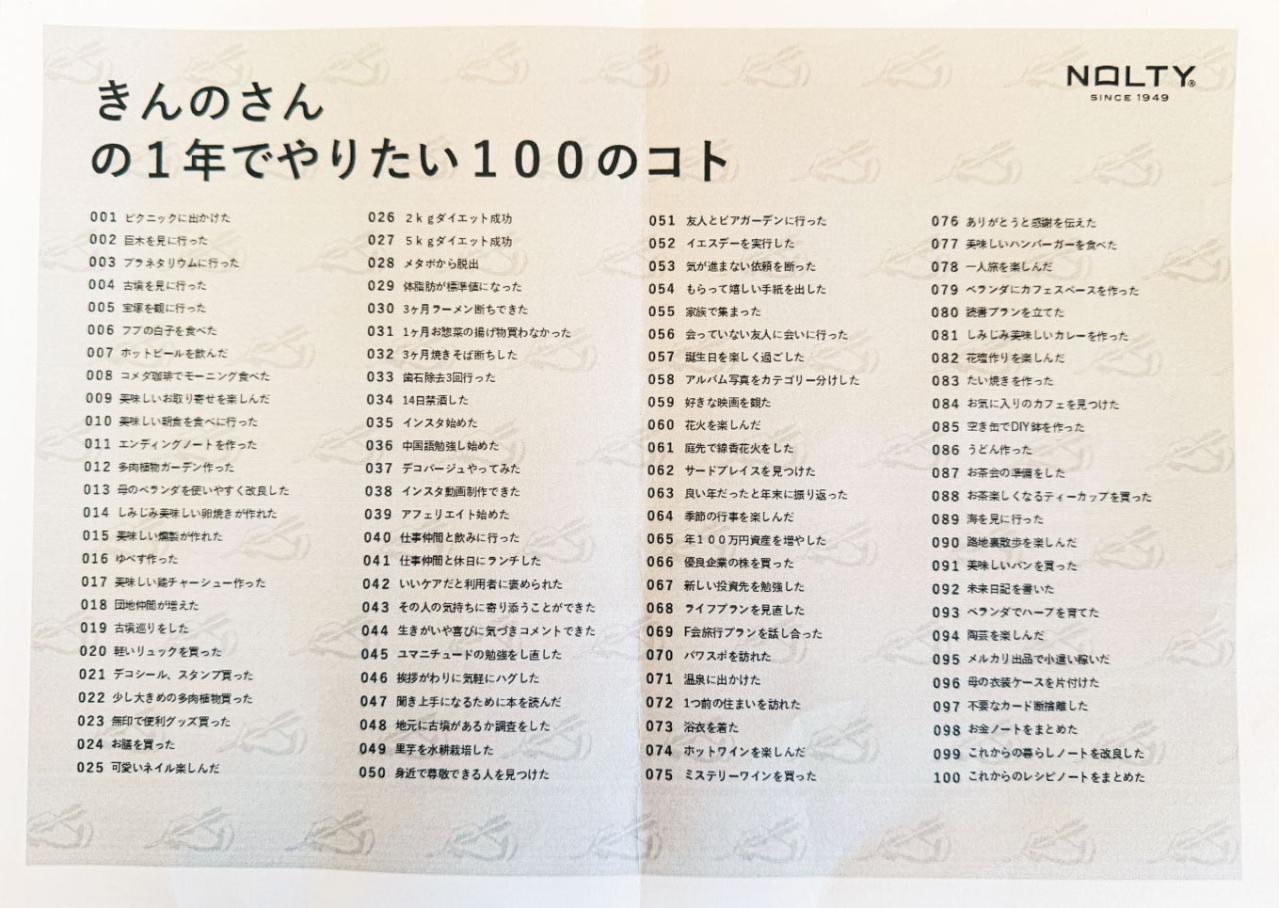 きんのさん
の１年でやりたい１００のコト
NOLTY®
SINCE 1949
001 ピクニックに出かけた
002 巨木を見に行った
003 プラネタリウムに行った
004 古墳を見に行った
005 宝塚を観に行った
006 フグの白子を食べた
007 ホットビールを飲んだ
008 コメダ珈琲でモーニング食べた
009 美味しいお取り寄せを楽しんだ
010 美味しい朝食を食べに行った
011 エンディングノートを作った
012 多肉植物ガーデン作った
013 母のベランダを使いやすく改良した
014 しみじみ美味しい卵焼きが作れた
015 美味しい燻製が作れた
016 ゆべす作った
017 美味しい鶏チャーシュー作った
018 団地仲間が増えた
019 古墳巡りをした
020 軽いリュックを買った
021 デコシール、スタンプ買った
022 少し大きめの多肉植物買った
023 無印で便利グッズ買った
024 お膳を買った
025 可愛いネイル楽しんだ
026 ２ｋｇダイエット成功
027 ５ｋｇダイエット成功
028 メタボから脱出
029 体脂肪が標準値になった
030 3ヶ月ラーメン断ちできた
031 1ヶ月お惣菜の揚げ物買わなかった
032 3ヶ月焼きそば断ちした
033 歯石除去3回行った
034 14日禁酒した
035 インスタ始めた
036 中国語勉強し始めた
037 デコパージュやってみた
038 インスタ動画制作できた
039 アフェリエイト始めた
040 仕事仲間と飲みに行った
041 仕事仲間と休日にランチした
042 いいケアだと利用者に褒められた
043 その人の気持ちに寄り添うことができた
044 生きがいや喜びに気づきコメントできた
045 ユマニチュードの勉強をし直した
046 挨拶がわりに気軽にハグした
047 聞き上手になるために本を読んだ
048 地元に古墳があるか調査をした
049 里芋を水耕栽培した
050 身近で尊敬できる人を見つけた
051 友人とビアガーデンに行った
052 イエスデーを実行した
053 気が進まない依頼を断った
054 もらって嬉しい手紙を出した
055 家族で集まった
056 会っていない友人に会いに行った
057 誕生日を楽しく過ごした
058 アルバム写真をカテゴリー分けした
059 好きな映画を観た
060 花火を楽しんだ
061 庭先で線香花火をした
062 サードプレイスを見つけた
063 良い年だったと年末に振り返った
064 季節の行事を楽しんだ
065 年１００万円資産を増やした
066 優良企業の株を買った
067 新しい投資先を勉強した
068 ライフプランを見直した
069 F会旅行プランを話し合った
070 パワスポを訪れた
071 温泉に出かけた
072 1つ前の住まいを訪れた
073 浴衣を着た
074 ホットワインを楽しんだ
075 ミステリーワインを買った
076 ありがとうと感謝を伝えた
077 美味しいハンバーガーを食べた
078 一人旅を楽しんだ
079 ベランダにカフェスペースを作った
080 読書プランを立てた
081 しみじみ美味しいカレーを作った
082 花壇作りを楽しんだ
083 たい焼きを作った
084 お気に入りのカフェを見つけた
085 空き缶でDIY鉢を作った
086 うどん作った
087 お茶会の準備をした
088 お茶楽しくなるティーカップを買った
089 海を見に行った
090 路地裏散歩を楽しんだ
091 美味しいパンを買った
092 未来日記を書いた
093 ベランダでハーブを育てた
094 陶芸を楽しんだ
095 メルカリ出品で小遣い稼いだ
096 母の衣装ケースを片付けた
097 不要なカード断捨離した
098 お金ノートをまとめた
099 これからの暮らしノートを改良した
100 これからのレシピノートをまとめた